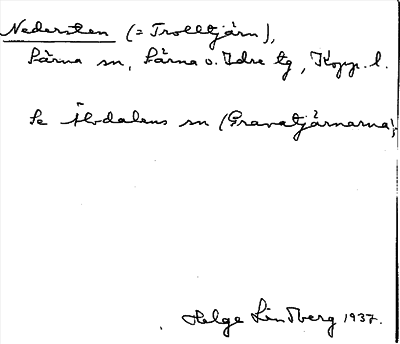 Nedersten (= Trolltjärn),
Särna sn, Särna o. Idre tg, Kopp. l.
Se Älvdalens sn (Gravatjärnarna),
Helge Lindberg 1937.